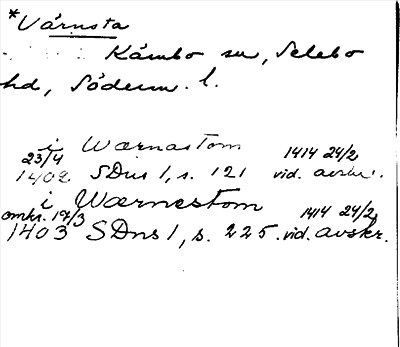 *Värnsta
Kärnbo sn, Selebo
hd, Söderm. l.
i Wærnastom
23/4 1402 SDns 1, s. 121 1414 24/2 vid. avskr.
i Wærnestom
omkr. 19/3 1403 SDns 1, s. 225. 1414 24/2 vid. avskr.